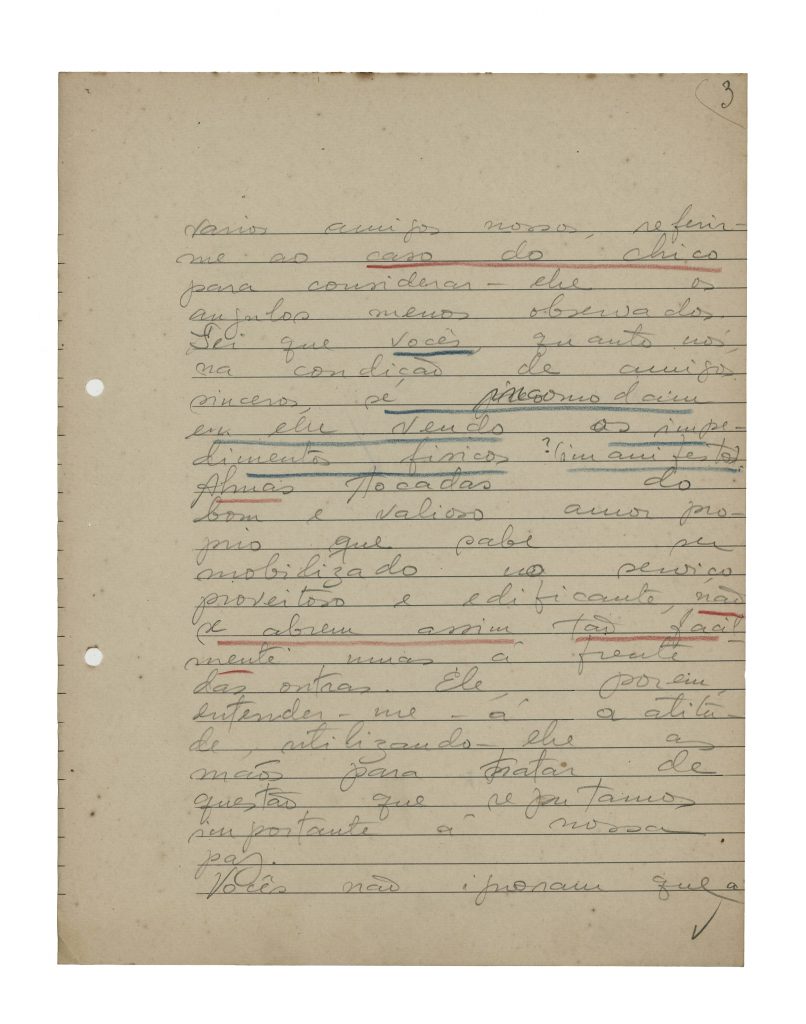 3
varios amigos nossos, referir-
me ao caso do chico
para considerar-lhe os
angulos menos observados.
Sei que vocês, quanto nós,
na condição de amigos
sinceros, se incomodam
em lhe vendo os impe-
dimentos fisicos ? (imanifestos).
Almas tocadas do
bom e valioso amor pro-
prio que sabe ser
mobilizado no serviço
proveitoso e edificante, não
se abrem assim tão facil-
mente umas á frente
das outras. Ele, porem,
entender-me-á a atitu-
de, utilizando-lhe as
mãos para tratar de
questão que reputamos
importante á nossa
paz.
Vocês não ignoram que a